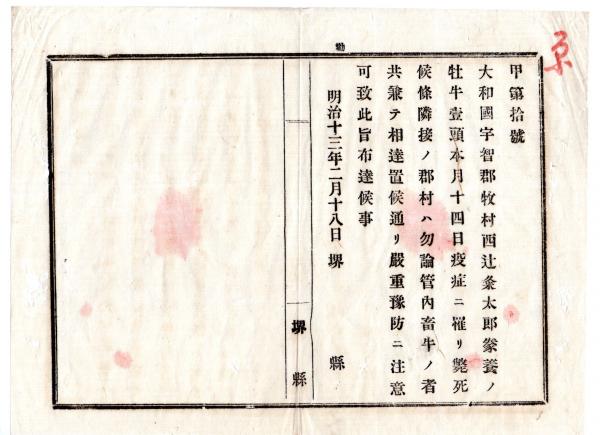 甲第拾號
大和國宇智郡牧村西辻粂太郎豢養ノ
牡牛壹頭本月十四日疫症ニ罹リ斃死
候條隣接ノ郡村ハ勿論管內畜牛ノ者
共兼テ相達置候通リ嚴重豫防ニ注意
可致此旨布達候事
明治十三年二月十八日 堺 縣
堺 縣